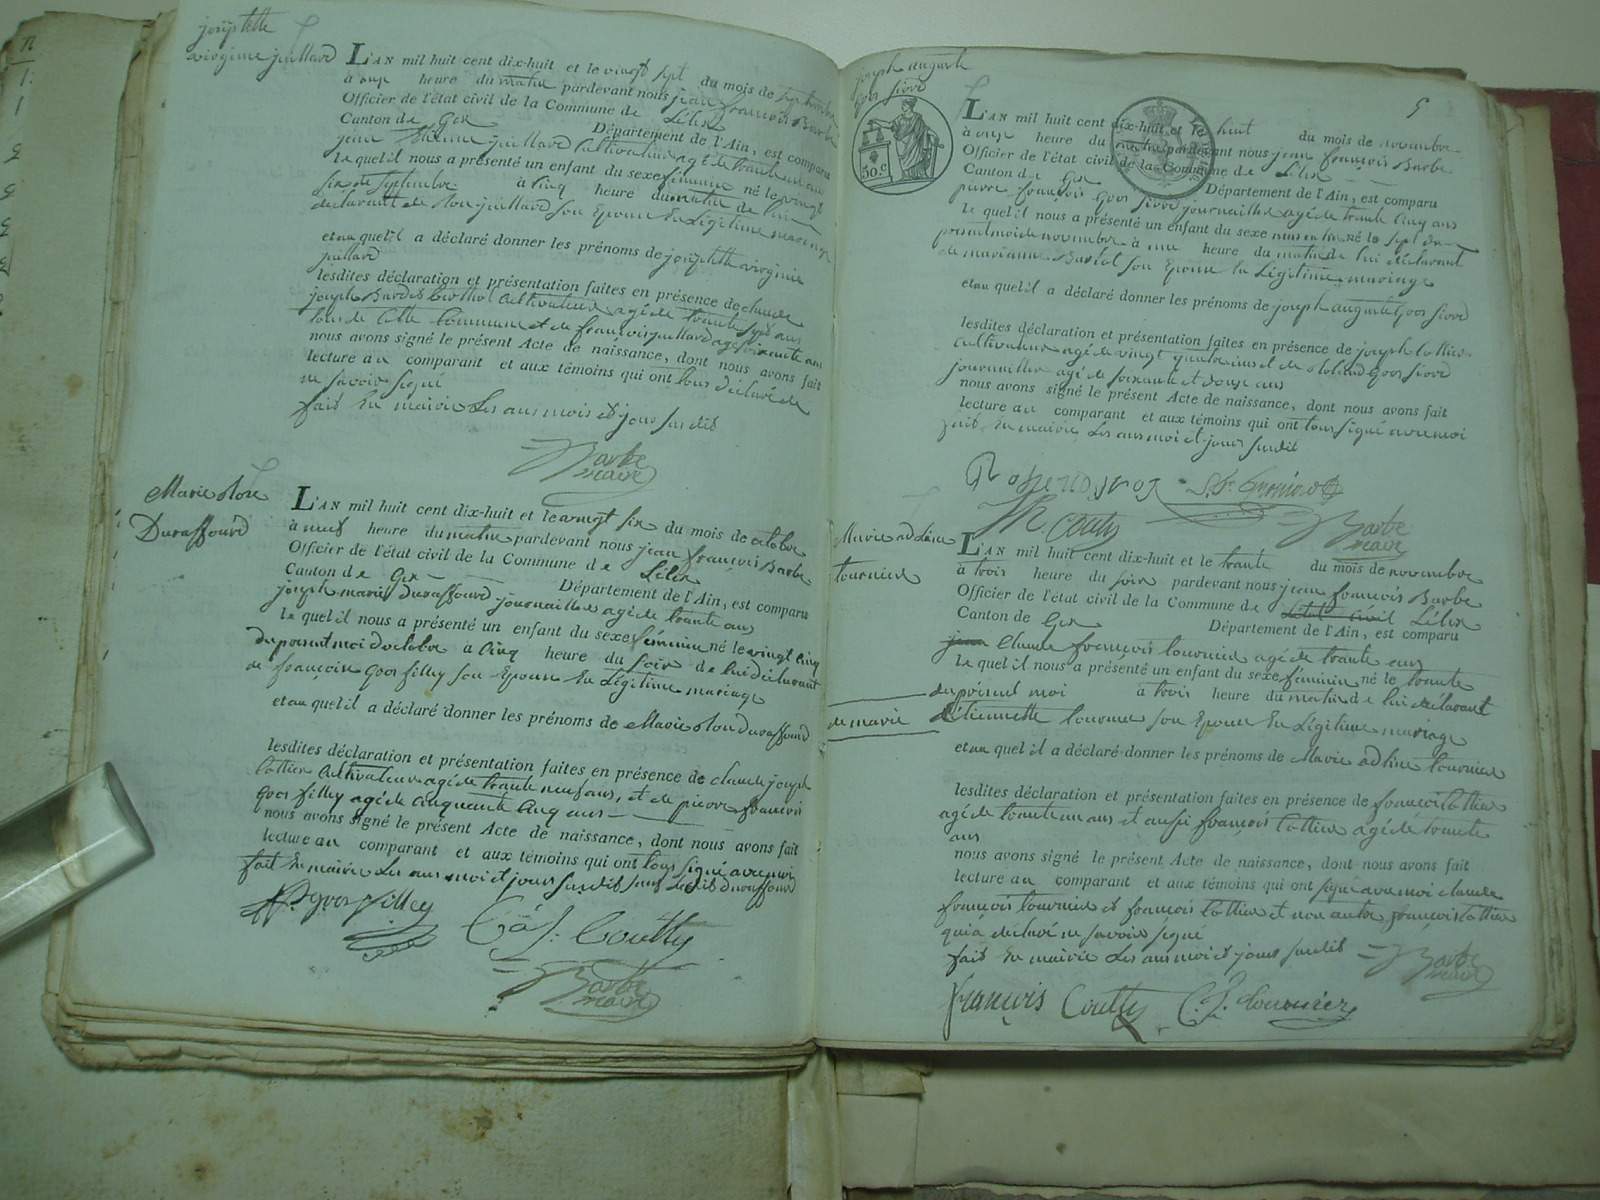 josephtette
virginie juillard
L'AN mil huit cent dix-huit et le vingt sept du mois de septembre
à onze heure du matin pardevant nous jean françois Barbe
Officier de l'état civil de la Commune de Lélex
Canton de Gex Département de l'Ain, est comparu
jean juillard Cultivateur agé de trante un an
Le quel il nous a présenté un enfant du sexe féminin né le vingt
six de septembre à cinq heure du matin de lui
declarant et de juillard son Epouse En Légitime mariage
et au quel il a déclaré donner les prénoms de josephtette virginie
juillard
lesdites déclaration et présentation faites en présence de claude
joseph Cultivateur agé de trante sept ans
tous de Cette Commune et de françois juillard agé soixante ans
nous avons signé le présent Acte de naissance, dont nous avons fait
lecture au comparant et aux témoins qui ont tous déclaré de
ne savoir signé
fait En mairie Les ans mois et jour susdits
Barbe
maire
Marie Rose
Duraffourd
L'AN mil huit cent dix-huit et le vingt six du mois de octobre
à neuf heure du matin pardevant nous jean françois Barbe
Officier de l'état civil de la Commune de Lélex
Canton de Gex Département de l'Ain, est comparu
joseph marie Duraffourd journaillier agé de trante ans
Le quel il nous a présenté un enfant du sexe féminin né le vingt cinq
du present moi d'octobre à cinq heure du soir de lui déclarant
de françoise gros fillex son Epouse En Légitime mariage
et au quel il a déclaré donner les prénoms de Marie Rose duraffourd
lesdites déclaration et présentation faites en présence de claude joseph
Cottier Cultivateur agé de trante neuf ans, et de pierre françois
gros filley agé de cinquante cinq ans
nous avons signé le présent Acte de naissance, dont nous avons fait
lecture au comparant et aux témoins qui ont tous signé avec moi
fait En mairie Les ans moi et jour susdits sauf Ledit duraffourd
grosfilley C. J. Coutty
Barbe
maire
5
joseph auguste
gros
50.c
L'AN mil huit cent dix-huit et le huit du mois de novembre
à onze heure du matin pardevant nous jean françois Barbe
Officier de l'état civil de la Commune de Lélex
Canton de Gex Département de l'Ain, est comparu
pierre françois gros journaillier agé de trante cinq ans
Le quel il nous a présenté un enfant du sexe masculin né le sept du
present moi de novembre à une heure du matin de lui déclarant
de marianne son Epouse En Légitime mariage
et au quel il a déclaré donner les prénoms de joseph auguste gros
lesdites déclaration et présentation faites en présence de joseph Cottier
Cultivateur agé de vingt quatre ans et de Roland gros
journaillier agé de soixante et douze ans
nous avons signé le présent Acte de naissance, dont nous avons fait
lecture au comparant et aux témoins qui ont tous signé avec moi
fait En mairie Les ans moi et jours susdit
Coutty
Barbe
maire
Marie adeline
tournier
L'AN mil huit cent dix-huit et le trante du mois de novembre
à trois heure du soir pardevant nous jean françois Barbe
Officier de l'état civil de la Commune de Létat Civil Lélex
Canton de Gex Département de l'Ain, est comparu
jean Claude françois tournier agé de trante ans
Le quel il nous a présenté un enfant du sexe féminin né le trante
du présent moi à trois heure du matin de lui déclarant
de marie Etiennette tournier son Epouse En Légitime mariage
et au quel il a déclaré donner les prénoms de Marie adline tournier
lesdites déclaration et présentation faites en présence de françois Cottier
agé de trante un ans et aussi françois Cottier agé de trante
ans
nous avons signé le présent Acte de naissance, dont nous avons fait
lecture au comparant et aux témoins qui ont signé avec moi claude
françois tournier et françois Cottier et non autre françois Cottier
qui a déclaré ne savoir signé
fait En mairie Les ans moi et jours susdits
Barbe
maire
françois Coutty C. f. tournier